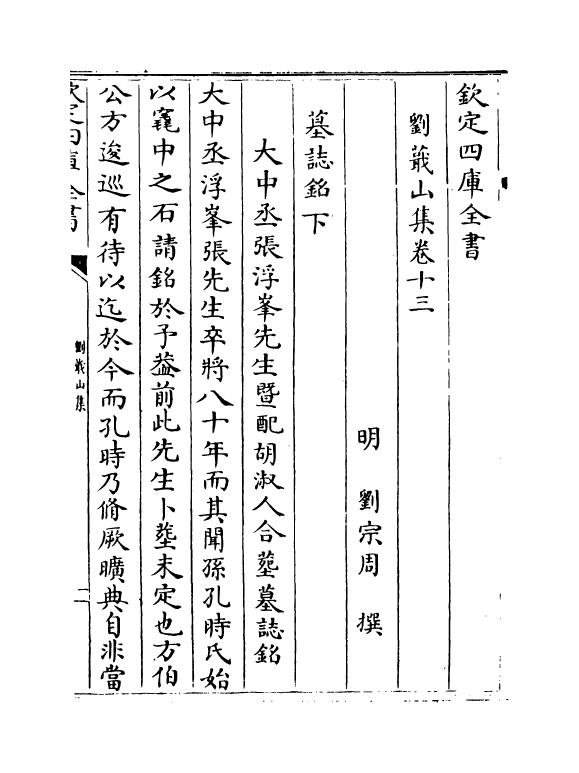 欽定四庫全書
劉蕺山集卷十三
明 劉宗周 撰
墓誌銘下
大中丞張浮峯先生暨配胡淑人合塟墓誌銘
大中丞浮峯張先生卒將八十年而其聞孫孔時氏始
以窀中之石請銘於予葢前此先生卜塟未定也方伯
公方逡巡有待以迄於今而孔時乃脩厥曠典自非當
欽定四庫全書
劉蕺山集